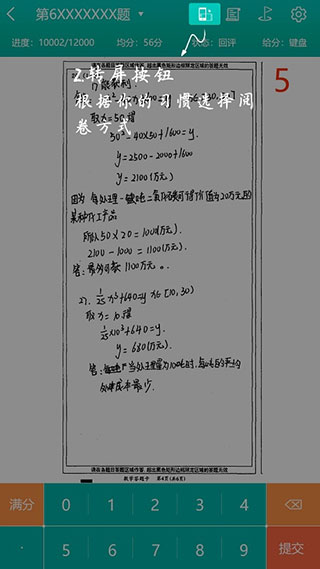 第6XXXXXXX题
进度：10002/12000 均分：56分 状态：回评 给分：键盘
请在各题目答题区域作答，超出黑色矩形边框限定区域的答案无效
5
2.转屏按钮
根据你的习惯选择阅
卷方式
取x=50得
50²-40×50+1600=y.
y=2500-2000+1600
y=2100(万元)
因为每处理一吨二氧化碳可得价值为20万元的
某种化工产品
所以50×20=1000(万元).
2100-1000=1100(万元).
答：最多可获1100万元。
2). 1/25 x³+640=y x∈[10,30)
取x=10得
1/25×10³+640=y.
y=680(万元)
答：当处理量为10吨时，每吨的平均
处理成本最少.
请在各题目答题区域作答，超出黑色矩形边框限定区域的答案无效
数学答题卡 第4页(共6页)
满分 0 1 2 3 4
· 5 6 7 8 9 提交